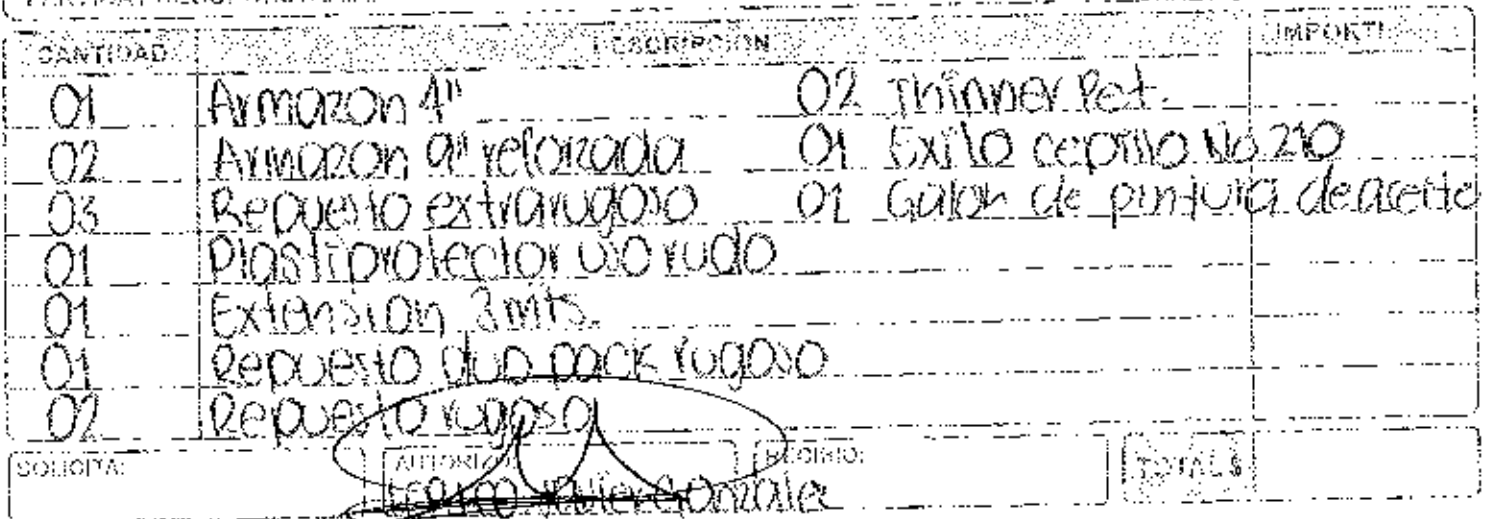 CANTIDAD DESCRIPCION IMPORTE
01 Armazon 4" 02 Thinner Pet.
02 Armazon 9" reforzada 01 Exito cepillo No. 210
03 Repuesto extrarugoso 01 Galon de pintura de aceite
01 Plastiprotector uso rudo
01 Extension 3 mts.
01 Repuesto duo pack rugoso
02 Repuesto rugoso
SOLICITA: AUTORIZO: RECIBIO: TOTAL $
Javier Gonzalez